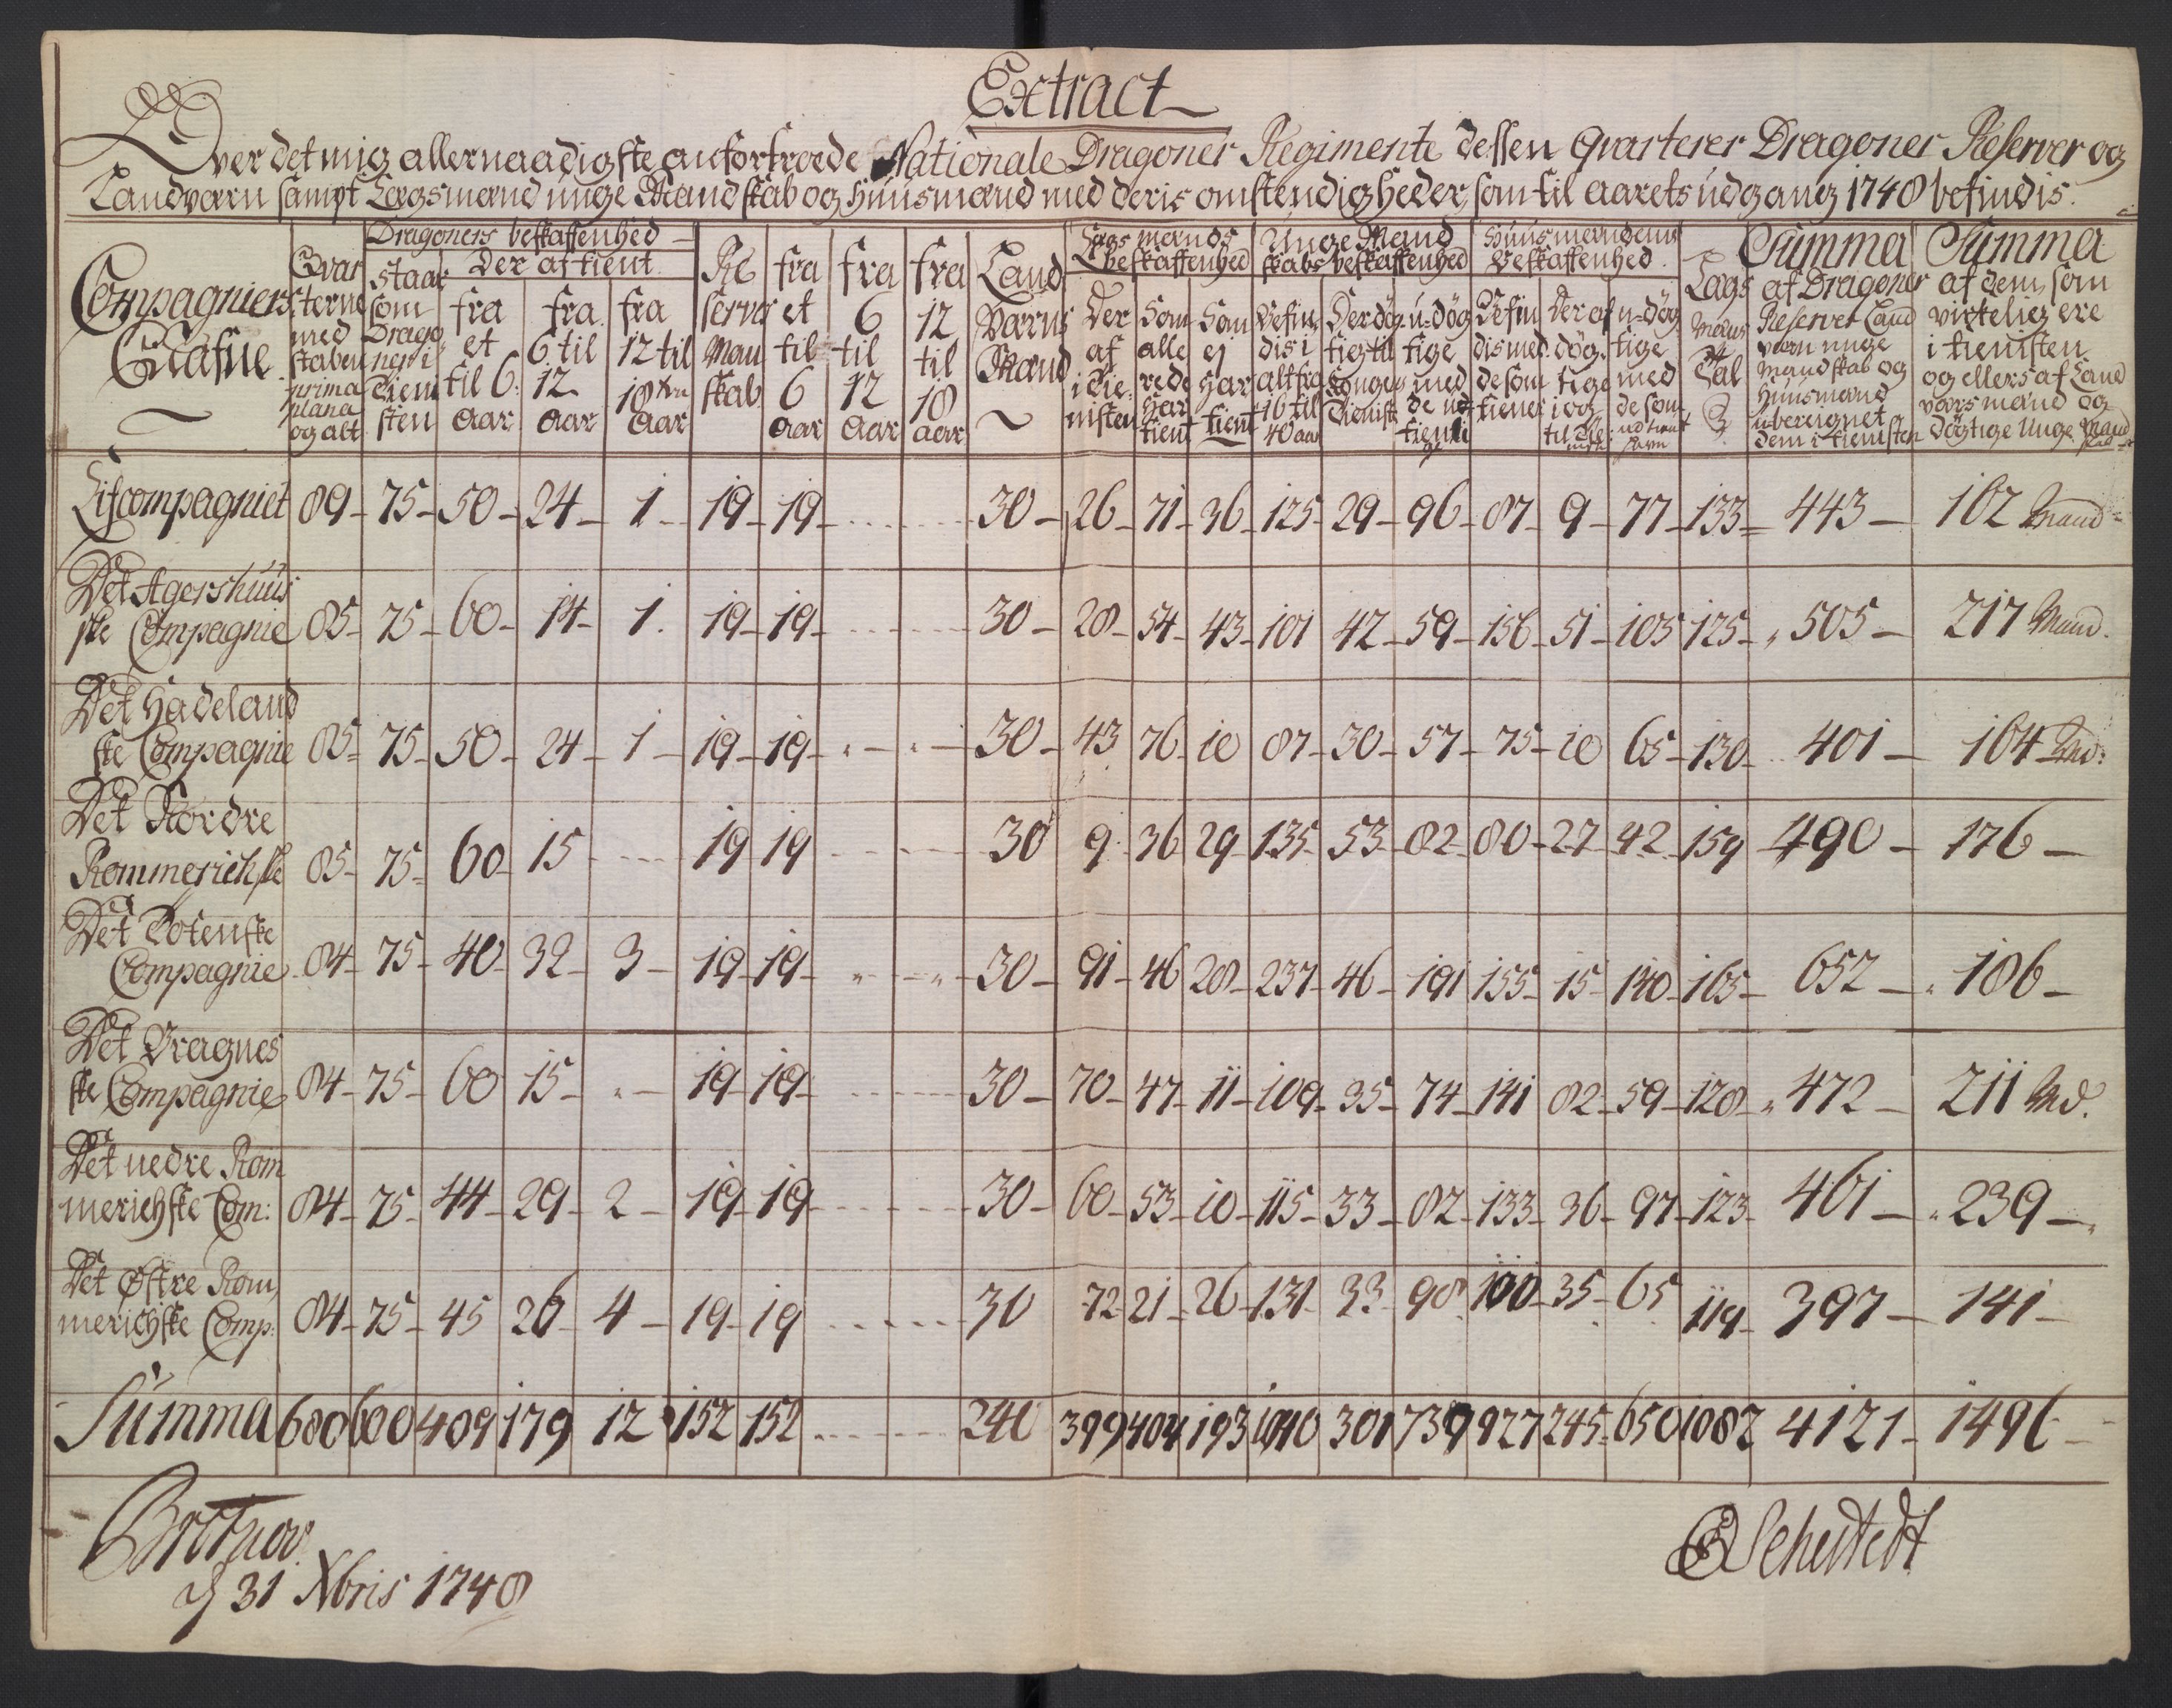 Extract
Over det mig allernaadigste anfortroede Nationale Dragoner Regimente dessen Qvarterer Dragoner Reserver og
Landværn sampt Lægsmænd unge Mandskab og Huusmænd med deris omstendigheder, som til aarets udgang 1748 befindis.
Compagniers Nafne
Qvarterne med staben prima plana og alt
Dragoners beskaffenhed
staar som Dragoner i Tiensten
Der af tient
fra et til 6: aar
fra 6 til 12 aar
fra 12 til 18 aar
Reserve Mandskab
fra et til 6 aar
fra 6 til 12 aar
fra 12 til 18 aar
Land Værns Mænd
Lægs mænds beskaffenhed
Der af i tienisten
Som allerede har tient
Som ej har tient
Unge Mandskabs beskaffenhed
Befindis i alt fra 16 til 40 aar
Der dögtig til Konges Tieniste
u-dögtige med de
Huusmændens beskaffenhed
Befindis med de som tiener
Der af dögtige
u-dögtige med de som
Lægs Mænds Tal
Summa af Dragoner Reserver Land værn unge Mandskab og Huusmænd uberegnet dem i tienisten
Summa af dem som virkelig ere i tienisten og ellers af Land værs mænd og dögtige Unge Mandskab
Lifcompagniet 89 - 75 - 50 - 24 - 1 - 19 - 19 - 30 - 26 - 71 - 36 - 125 - 29 - 96 - 87 - 9 - 77 - 133 - 443 - 162 Mand
Det Agershuus
ske Compagnie 85 - 75 - 60 - 14 - 1 . 19 - 19 - 30 - 28 - 54 - 43 - 101 42 - 59 - 156 - 51 - 105 125 - 505 - 217 Mand.
Det Hadeland
ske Compagnie 85 - 75 - 50 - 24 - 1 - 19 - 19 - 30 - 43 76 - 10 87 - 30 - 57 - 75 - 10 65 - 130 - 401 - 164 Md:
Det Nordre
Rommerichske 85 - 75 - 60 - 15 19 19 30 9 - 36 29 - 135 - 53 - 82 - 80 - 27 - 42 - 159 490 - 176 -
Det Totenske
Compagnie 84 - 75 - 40 - 32 - 3 - 19 - 19 - 30 - 91 - 46 28 - 237 - 46 - 191 155 - 15 - 140 - 165 - 652 - 186 -
Det Vragnes
ske Compagnie 84 - 75 - 60 15 - 19 - 19 - 30 - 70 - 47 - 11 - 109 - 35 - 74 - 141 82 - 59 - 128 - 472 - 211 Md.
Det nedre Rom
merichske Com: 84 - 75 - 44 - 29 - 2 - 19 - 19 - 30 - 60 - 53 - 10 - 115 - 33 - 82 - 133 - 36 - 97 - 123 - 461 - 239 -
Det Østre Rom
merichske Comp: 84 - 75 - 45 26 - 4 - 19 - 19 30 72 - 21 - 26 - 131 - 33 - 98 - 100 - 35 - 65 119 - 397 - 141 -
Summa 680 600 409 179 12 152 152 240 399 404 193 1040 301 739 927 245 - 650 1082 4121 - 1496 -
d 31 Xbris 1748
Schestedt